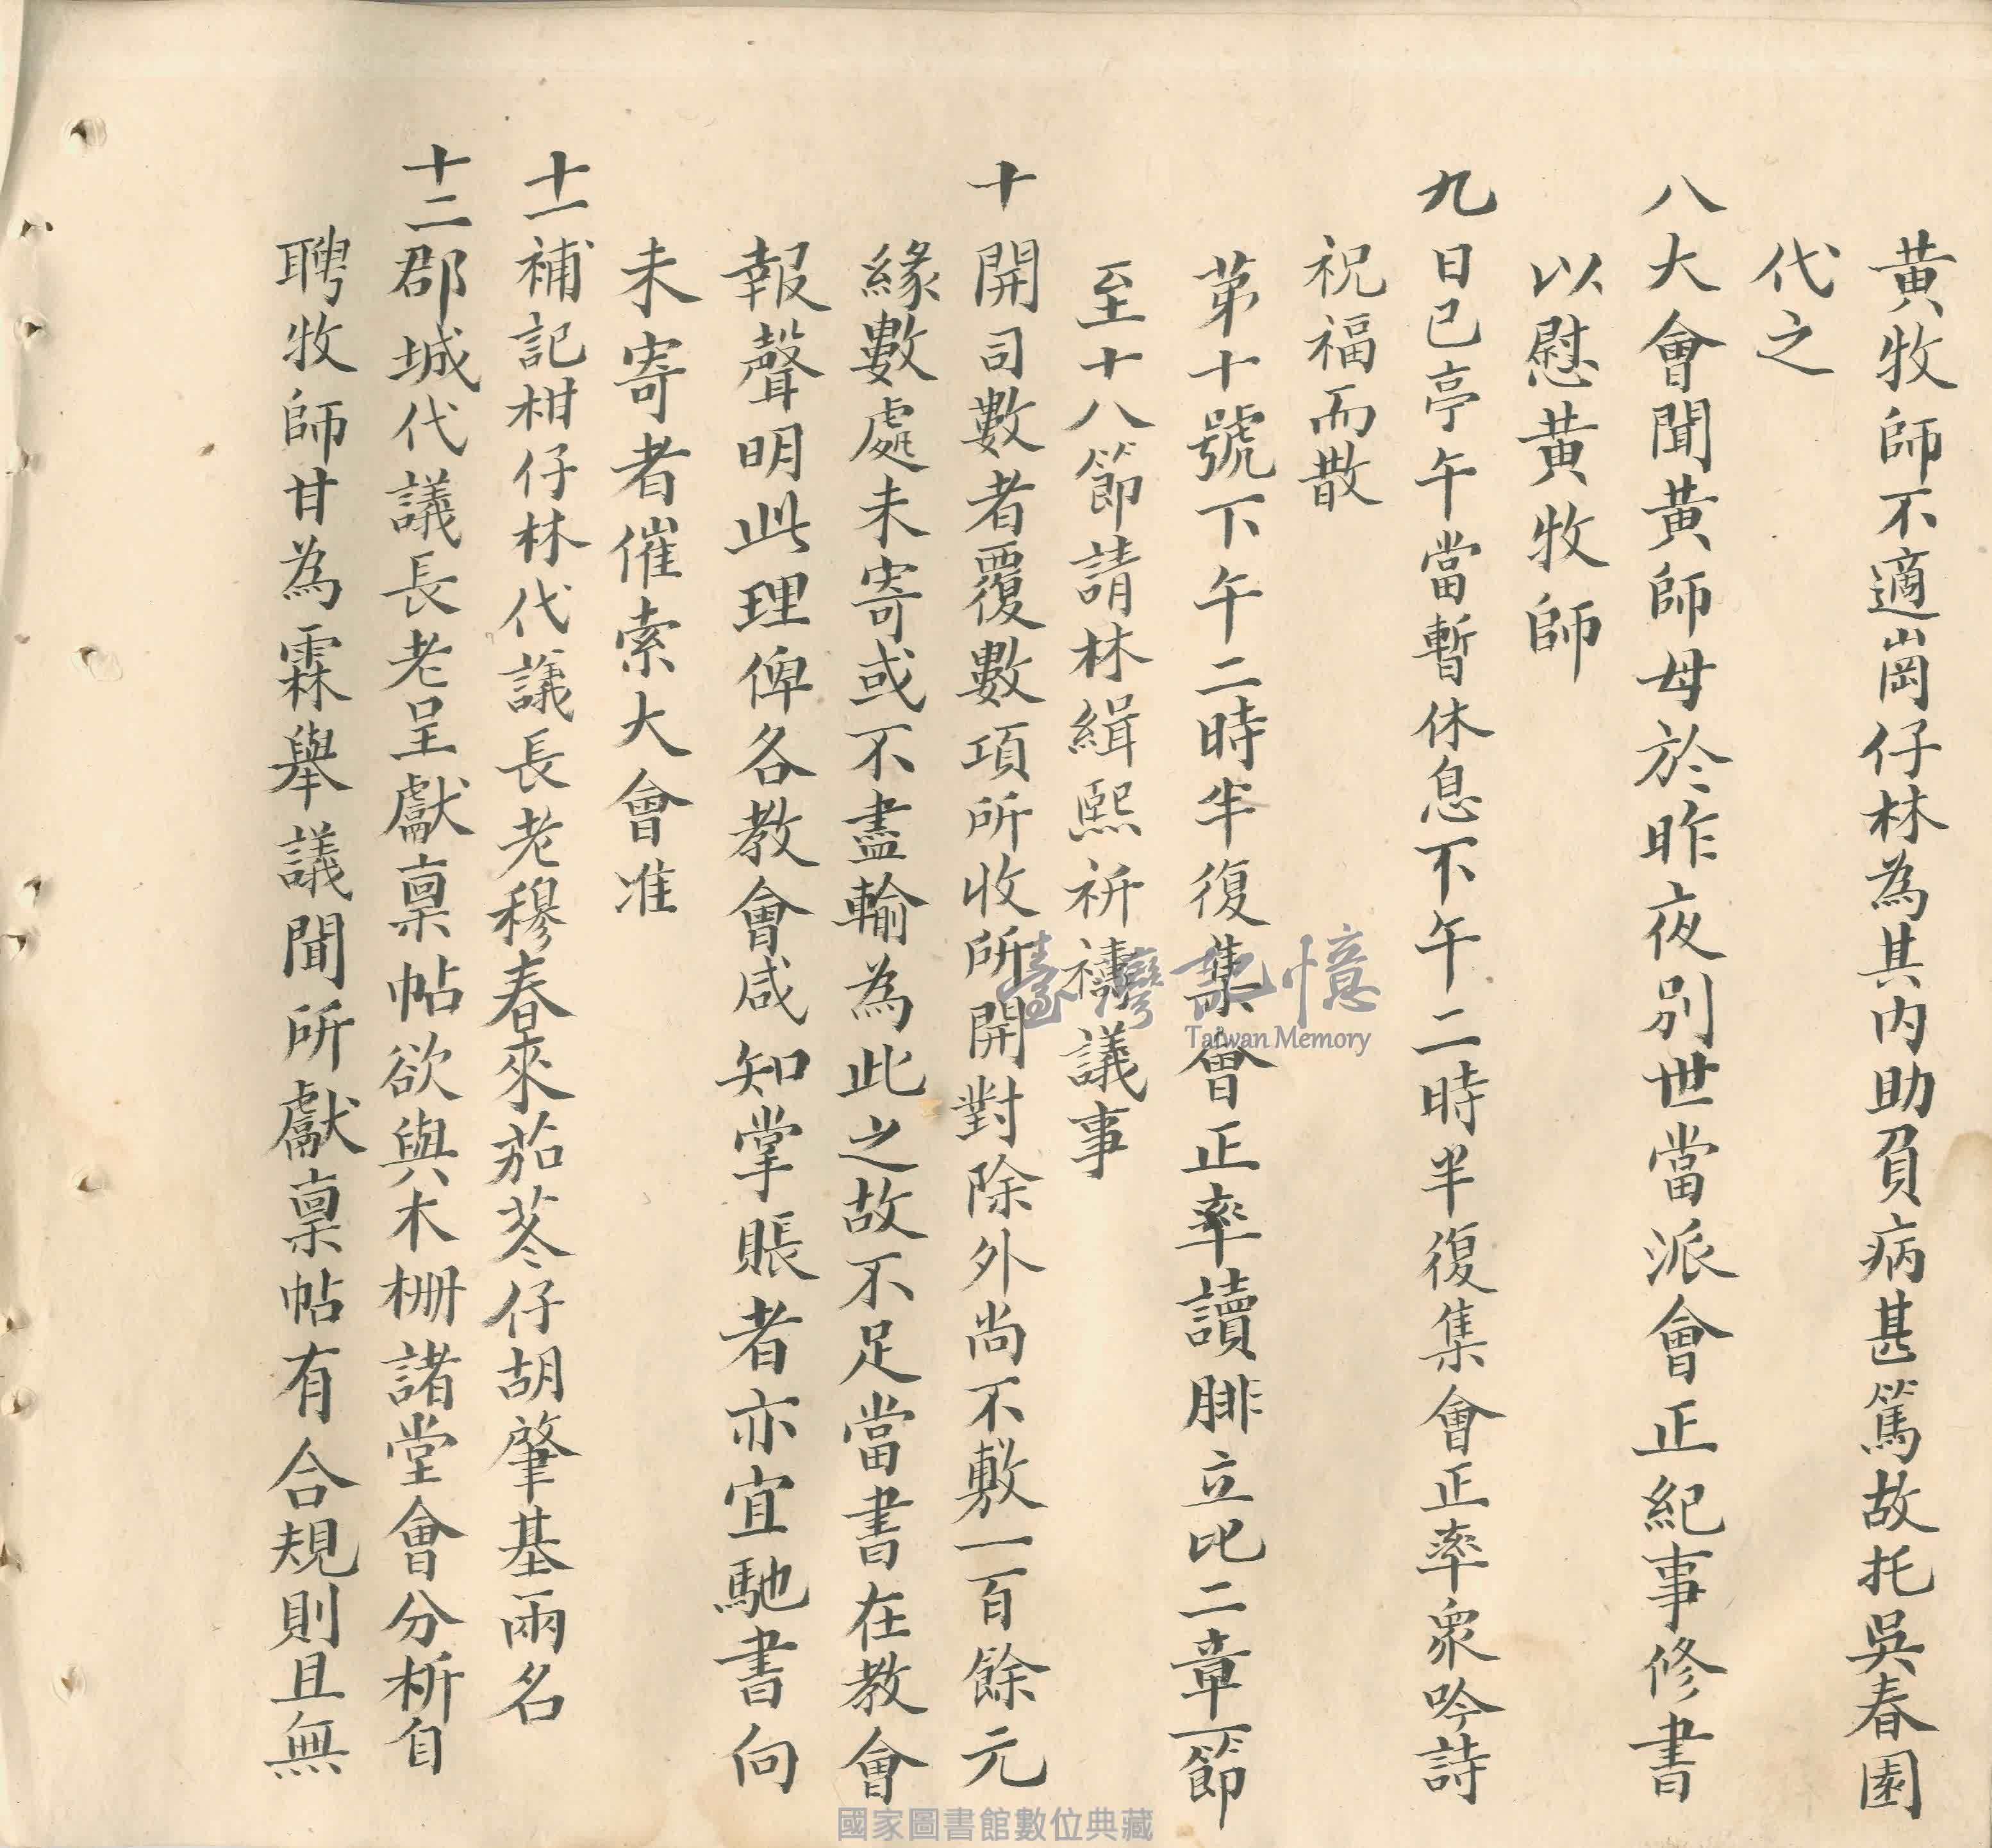 黃牧師不適崗仔林為其內助負病甚篤故托吳春園
代之
八大會聞黃師母於昨夜別世當派會正紀事修書
以慰黃牧師
九日已亭午當暫休息下午二時半復集會正率眾吟詩
祝福而散
第十號下午二時半復集會正率讀腓立比二章一節
至十八節請林緝熙祈禱議事
十開司數者覆數項所收所開對除外尚不敷一百餘元
緣數處未寄或不盡輸為此之故不足當書在教會
報聲明此理俾各教會咸知掌賬者亦宜馳書向
未寄者催索大會准
十一補記柑仔林代議長老穆春來茄苳仔胡肇基兩名
十二郡城代議長老呈獻稟帖欲與木柵諸堂會分析自
聘牧師甘為霖舉議聞所獻稟帖有合規則且無
臺灣記憶
Taiwan Memory
國家圖書館數位典藏